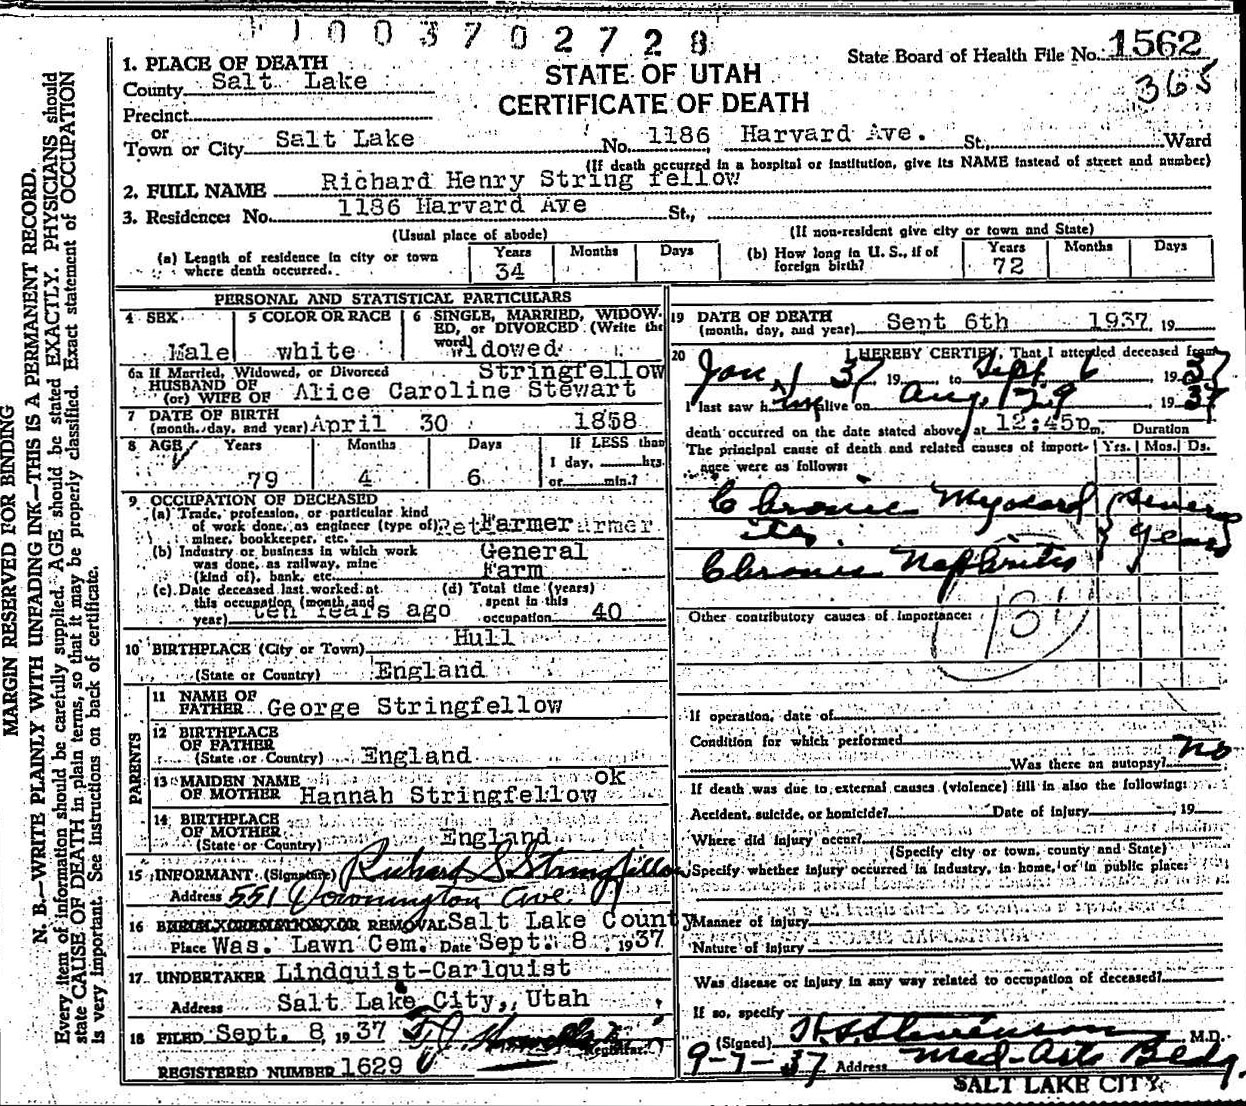 1003702728
State Board of Health File No. 1562
365
STATE OF UTAH
CERTIFICATE OF DEATH
MARGIN RESERVED FOR BINDING
N. B.—WRITE PLAINLY WITH UNFADING INK—THIS IS A PERMANENT RECORD.
Every item of information should be carefully supplied. AGE should be stated EXACTLY. PHYSICIANS should
state CAUSE OF DEATH in plain terms, so that it may be properly classified. Exact statement of OCCUPATION
is very important. See instructions on back of certificate.
1. PLACE OF DEATH
County Salt Lake
Precinct
or
Town or City Salt Lake No. 1186 Harvard Ave. St., Ward
(If death occurred in a hospital or institution, give its NAME instead of street and number)
2. FULL NAME Richard Henry String fellow
3. Residence: No. 1186 Harvard Ave St.,
(Usual place of abode) (If non-resident give city or town and State)
(a) Length of residence in city or town where death occurred. Years 34 Months Days
(b) How long in U. S., if of foreign birth? Years 72 Months Days
PERSONAL AND STATISTICAL PARTICULARS
4 SEX Male
5 COLOR OR RACE white
6 SINGLE, MARRIED, WIDOWED, or DIVORCED (Write the word) Widowed
6a If Married, Widowed, or Divorced Stringfellow
HUSBAND OF
(or) WIFE OF Alice Caroline Stewart
7 DATE OF BIRTH
(month, day, and year) April 30 1858
8 AGE Years 79 Months 4 Days 6 If LESS than 1 day, hrs. or min.?
9 OCCUPATION OF DECEASED
(a) Trade, profession, or particular kind
of work done, as engineer (type of) Ret Farmer
miner, bookkeeper, etc.
(b) Industry or business in which work General
was done, as railway, mine
(kind of), bank, etc. Farm
(c) Date deceased last worked at this occupation (month and year) ten Years ago
(d) Total time (years) spent in this occupation 40
10 BIRTHPLACE (City or Town) Hull
(State or Country) England
PARENTS
11 NAME OF FATHER George Stringfellow
12 BIRTHPLACE OF FATHER
(State or Country) England
13 MAIDEN NAME OF MOTHER Hannah Stringfellow ok
14 BIRTHPLACE OF MOTHER
(State or Country) England
15 INFORMANT (Signature) Richard S Stringfellow
Address 551 Downington Ave.
16 BURIAL, CREMATION, OR REMOVAL Salt Lake County
Place Was. Lawn Cem. Date Sept. 8 1937
17 UNDERTAKER Lindquist-Carlquist
Address Salt Lake City, Utah
18 FILED Sept. 8, 1937
Registrar.
REGISTERED NUMBER 1629
19 DATE OF DEATH
(month, day, and year) Sept 6th 1937 19
20 I HEREBY CERTIFY, That I attended deceased from
Jan 1 37, 19 to Sept. 6 19 37
I last saw him alive on Aug. 29 19 37
death occurred on the date stated above, at 12:45p m. Duration
The principal cause of death and related causes of importance were as follows: Yrs. Mos. Ds.
Chronic Myocard several
itis. years
Chronic Nephritis
Other contributory causes of importance:
131
If operation, date of
Condition for which performed
Was there an autopsy? no
If death was due to external causes (violence) fill in also the following:
Accident, suicide, or homicide? Date of injury 19
Where did injury occur?
(Specify city or town, county and State)
Specify whether injury occurred in industry, in home, or in public place:
Manner of injury
Nature of injury
Was disease or injury in any way related to occupation of deceased?
If so, specify
(Signed) H.S. Stevenson M.D.
9-7-37 Address Med-Arts Bldg.
SALT LAKE CITY.